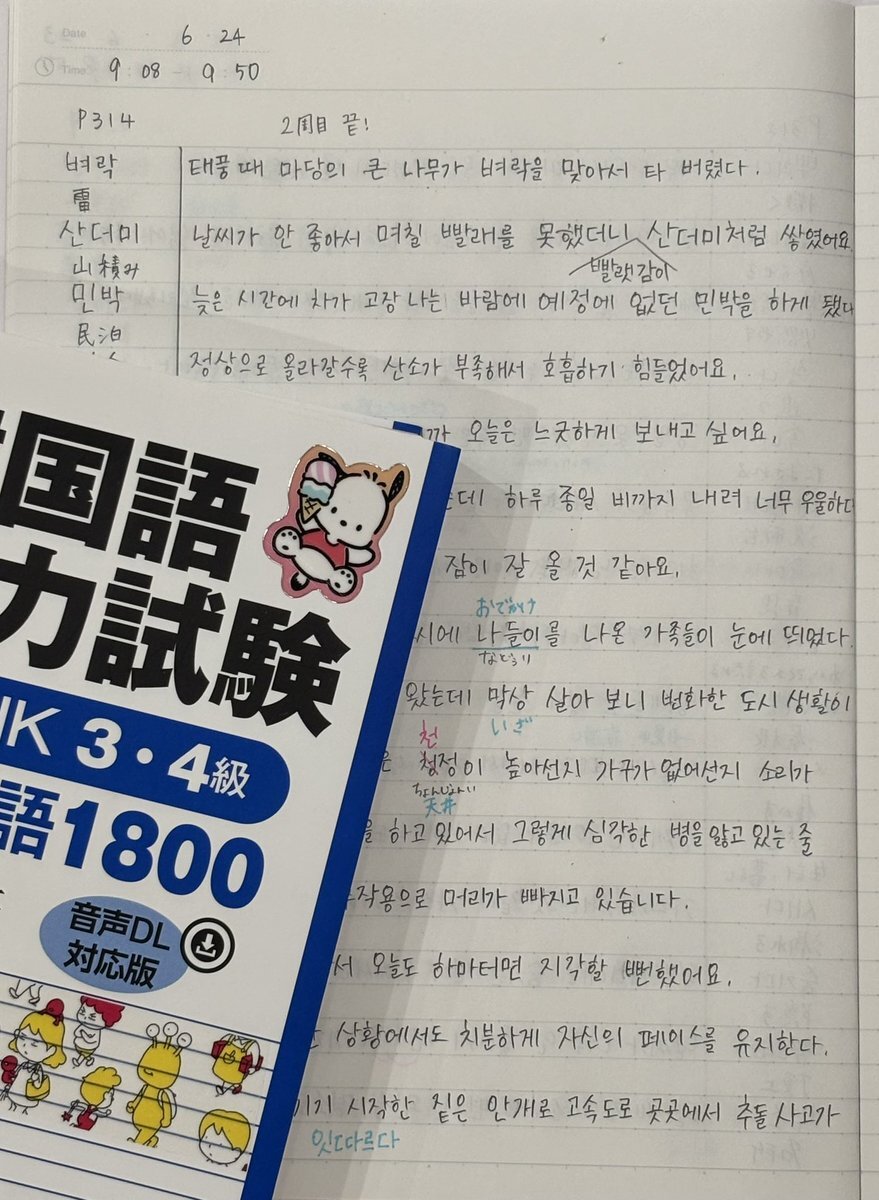 Date 6 24
Time 9:08 - 9:50
P314 2周目 끝!
벼락 태풍 때 마당의 큰 나무가 벼락을 맞아서 타 버렸다.
雷
산더미 날씨가 안 좋아서 며칠 빨래를 못했더니 산더미처럼 쌓였어요
山積み 빨랫감이
민박 늦은 시간에 차가 고장 나는 바람에 예정에 없던 민박을 하게 됐다
民泊
정상으로 올라갈수록 산소가 부족해서 호흡하기 힘들었어요.
까 오늘은 느긋하게 보내고 싶어요.
는데 하루 종일 비까지 내려 너무 우울하다
잠이 잘 올 것 같아요.
おでかけ
시에 나들이를 나온 가족들이 눈에 띄었다.
などぅり
왔는데 막상 살아 보니 번화한 도시 생활이
いざ
천
청정이 높아선지 가구가 없어선지 소리가
ちょんじょんい
天井
을 하고 있어서 그렇게 심각한 병을 앓고 있는 줄
작용으로 머리가 빠지고 있습니다.
서 오늘도 하마터면 지각할 뻔했어요.
상황에서도 치분하게 자신의 페이스를 유지한다.
기기 시작한 짙은 안개로 고속도로 곳곳에서 추돌 사고가
잇따르다
国語
力試験
3・4級
語1800
音声DL
対応版